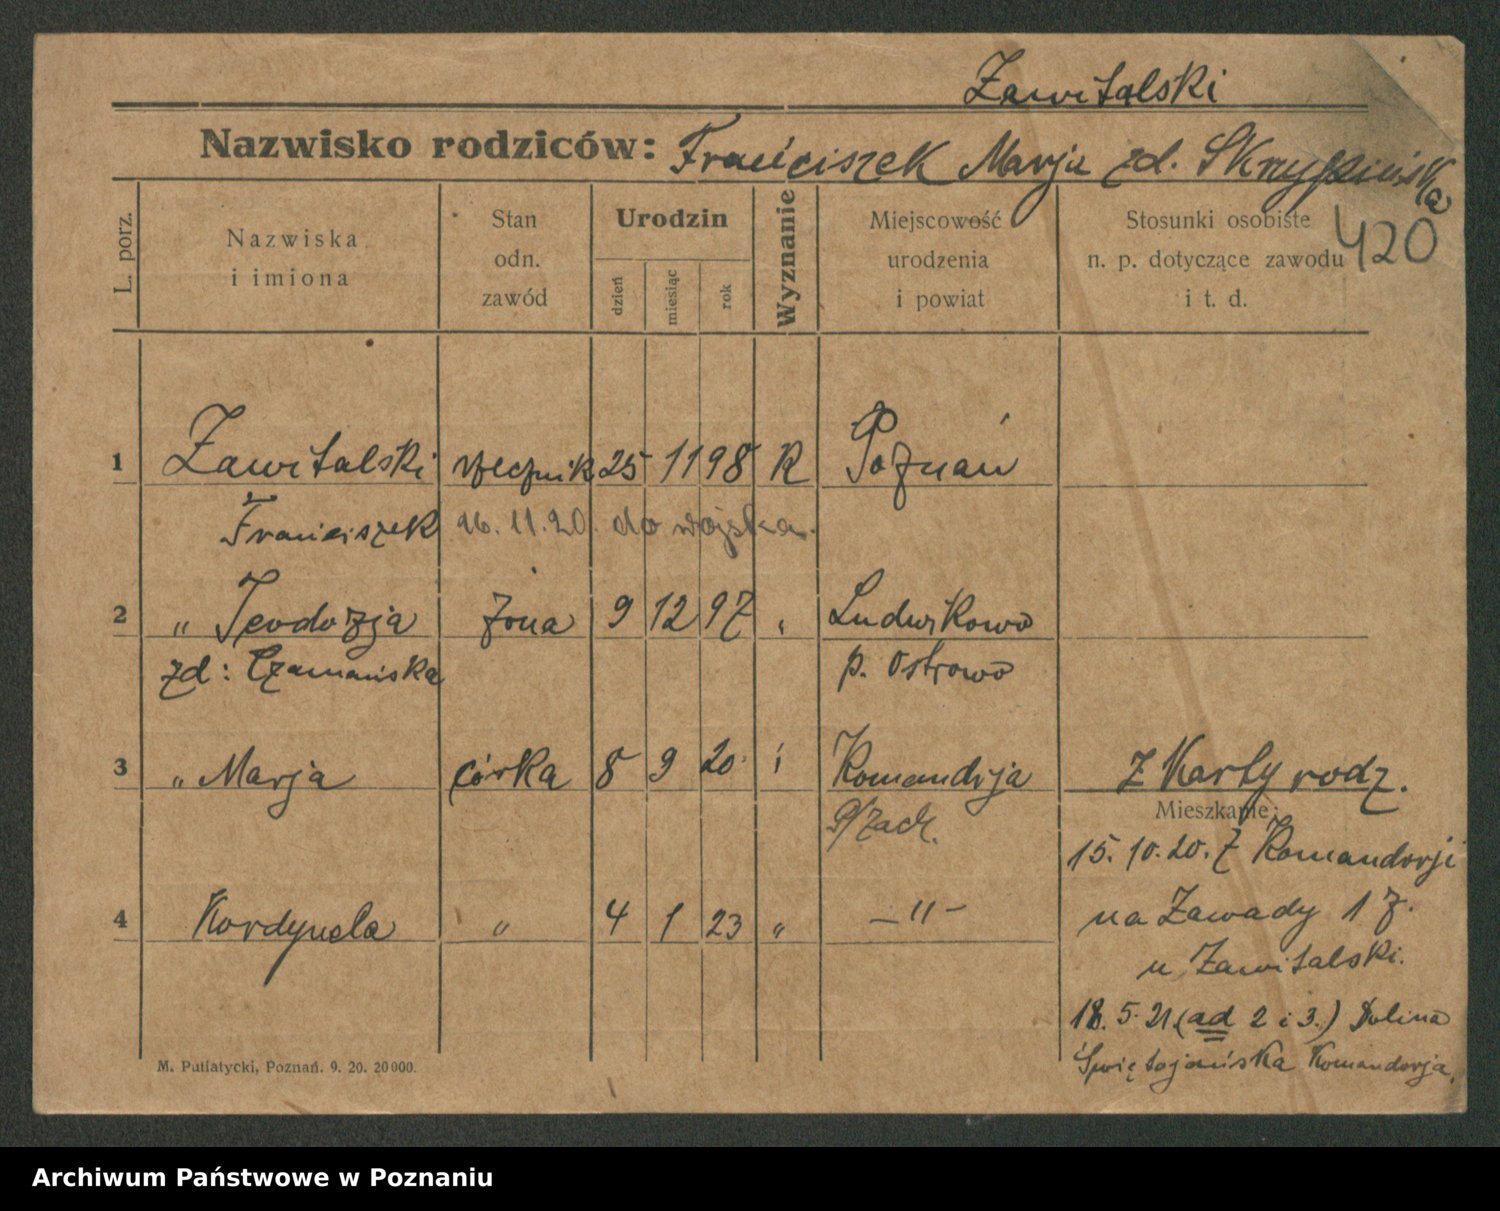 Zawitalski
Nazwisko rodziców: Franciszek Marja zd. Skrzypińska
420
L. porz.
Nazwiska i imiona
Stan odn. zawód
Urodzin
dzień miesiąc rok
Wyznanie
Miejscowość urodzenia i powiat
Stosunki osobiste n. p. dotyczące zawodu i t. d.
1 Zawitalski 25 11 98 K Poznań
Franciszek 26.11.20. do wojska.
2 " Teodozja żona 9 12 97 " Ludwikowo
zd: Czamańska p. Ostrowo
3 " Marja córka 8 9 20 " Komandrja z Karty rodz.
Mieszkanie:
15.10.20. Z Komandorji
4 Kordyuela " 4 1 23 " —"— na Zawady 1 z.
u Zawitalski.
18.5.21 (ad 2 i 3.) Dolina
Świętojańska Komandorja.
M. Putiatycki, Poznań. 9. 20. 20000.
Archiwum Państwowe w Poznaniu